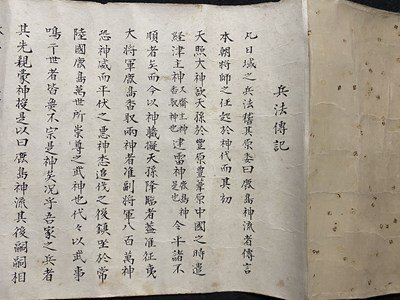 兵法傳記
凡日域之兵法舊其原委曰鹿島神流者傳言
本朝將師之任起於神代而其初
天照大神欲天孫於豐原豊葦原中國之時遣
経津主神又齋主神香取神也建雷神鹿島神是也令平諸不
順者矣而今以神職擬天孫降臨者蓋准征夷
大將軍鹿島香取兩神者准副將軍八百萬神
恐神威而平伏之悪神悉追伐之後鎮坐於常
陸國鹿島萬世所崇尊之武神也代々以武事
鳴于世者皆無不宗是神矣况乎吾家之兵者
其先親蒙神授是以曰鹿島神流其後嗣嗣相